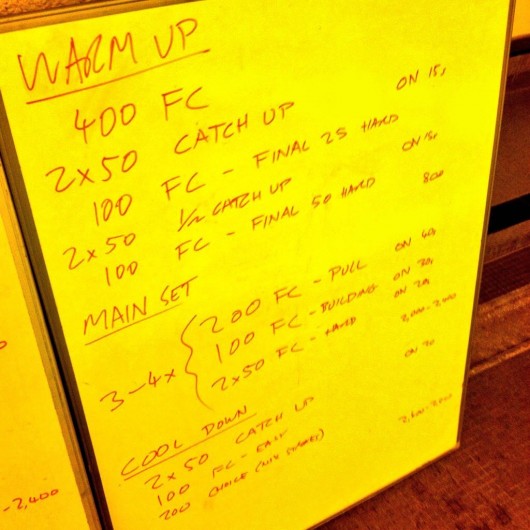 WARM UP
400 FC
2x50 CATCH UP ON 15s
100 FC - FINAL 25 HARD
2x50 1/2 CATCH UP ON 15s
100 FC - FINAL 50 HARD 800
MAIN SET
3-4x { 200 FC - PULL ON 40s
100 FC - BUILDING ON 30s
2x50 FC - HARD ON 20s
2,000-2,400
COOL DOWN
2x50 CATCH UP
100 FC - EASY
200 CHOICE
-2,400